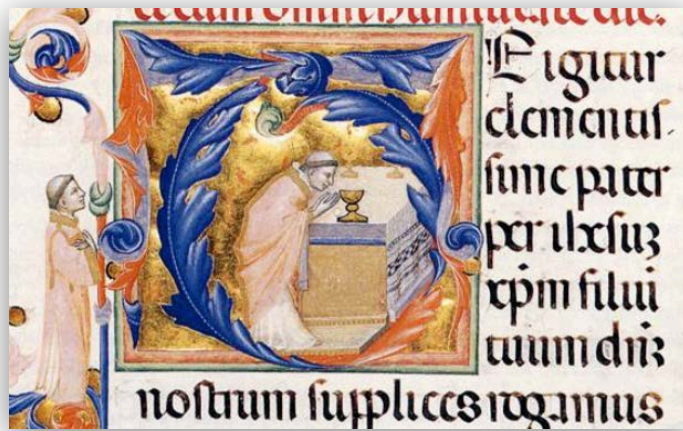 TE igitur
clementis
sime pater
per ihesuz
xpm filiu
tuum dnz
nostrum supplices rogamus